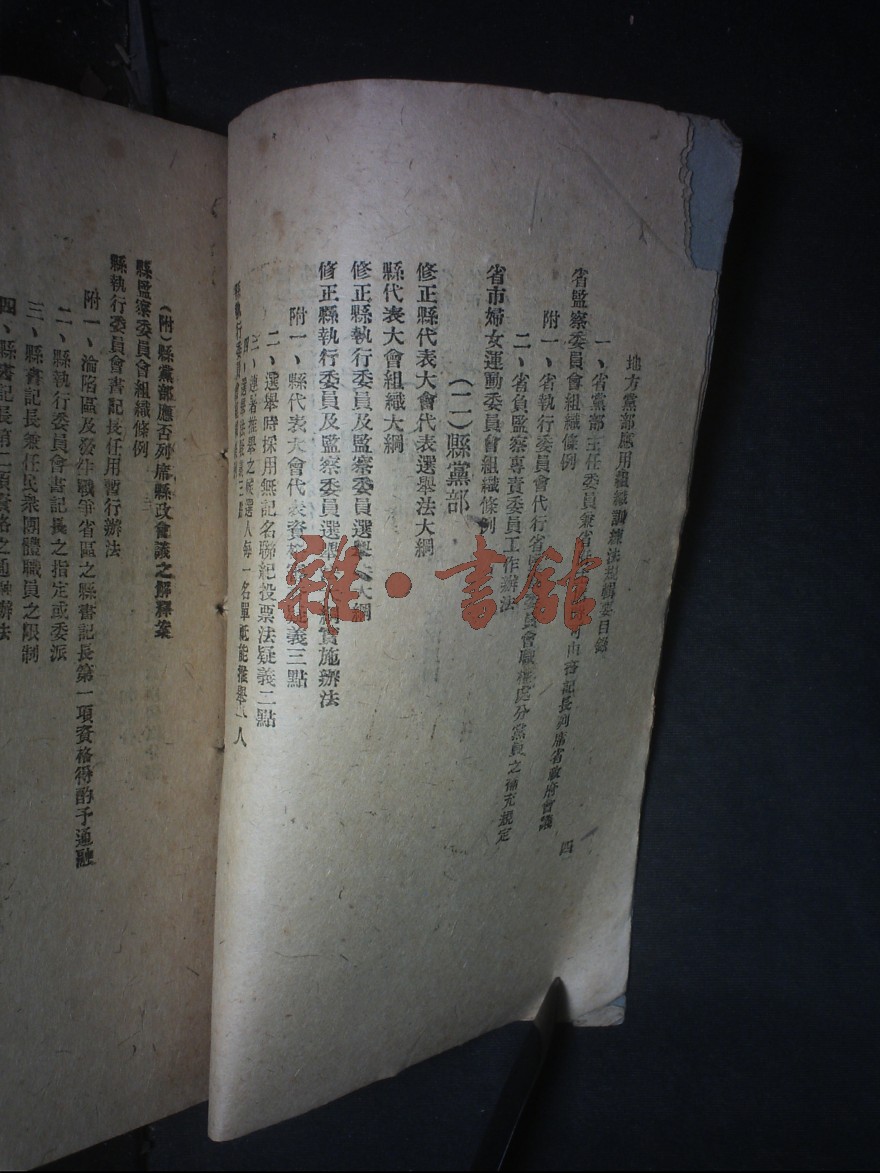 地方黨部應用組織訓練法規輯要目錄
四
一、省黨部主任委員兼省書記長列席省政府會議
省監察委員會組織條例
附一、省執行委員會代行省委員會職權處分黨員之補充規定
二、省負監察專責委員工作辦法
省市婦女運動委員會組織條例
(二)縣黨部
修正縣代表大會代表選舉法大綱
縣代表大會組織大綱
修正縣執行委員及監察委員選舉法大綱
修正縣執行委員及監察委員選舉實施辦法
附一、縣代表大會代表資疑義三點
二、選舉時採用無記名聯記投票法疑義二點
三、連署推舉之候選人每一名單祇能推舉一人
四、選舉法疑義三點
縣執行委員
(附)縣黨部應否列席縣政會議之解釋案
縣監察委員會組織條例
縣執行委員會書記長任用暫行辦法
附一、淪陷區及發生戰爭省區之縣書記長第一項資格得酌予通融
二、縣執行委員會書記長之指定或委派
三、縣書記長兼任民衆團體職員之限制
四、縣書記長第二項資格之通融辦法
雜·書館